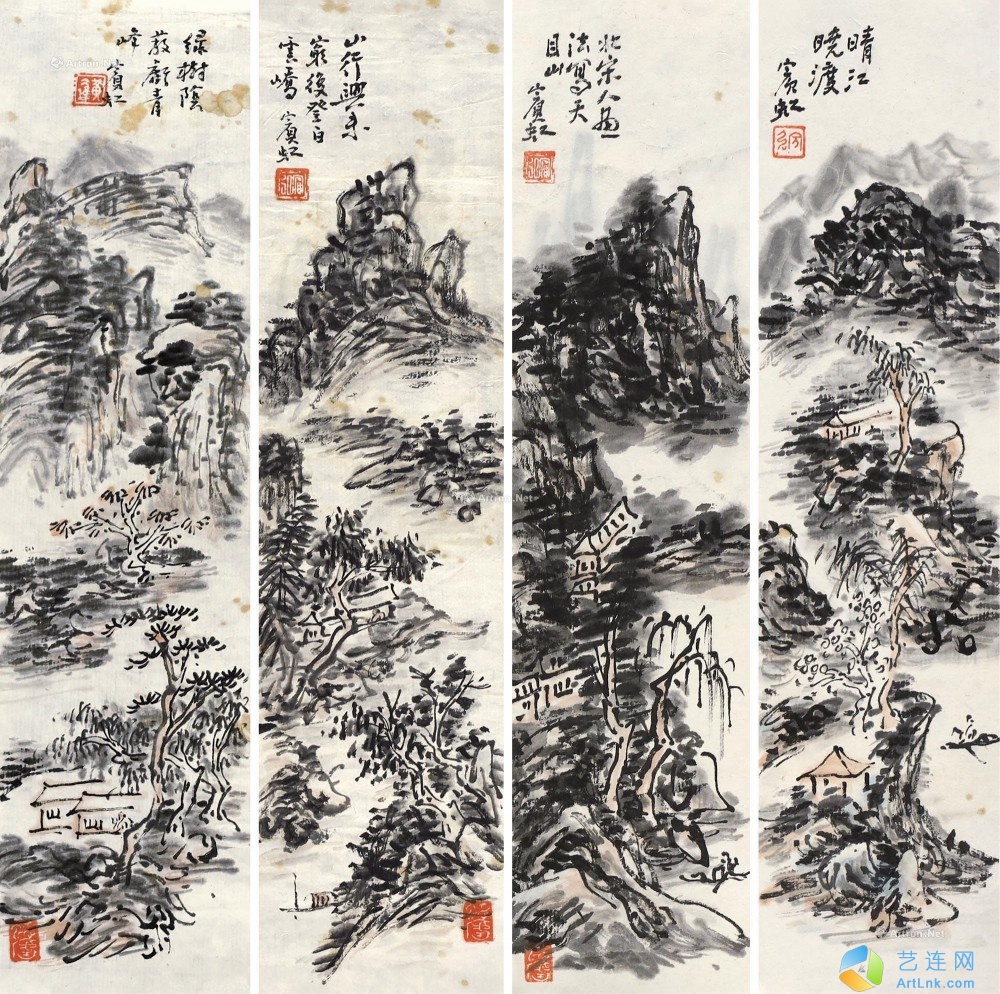 緑樹陰
蔽虧青
峰 賓虹
山行興未
窮後登白
雲嶠 賓虹
北宋人畫
法寫天
目山 賓虹
晴江
曉渡
賓虹
ArtLnk.Net
艺连网
ArtLnk.com